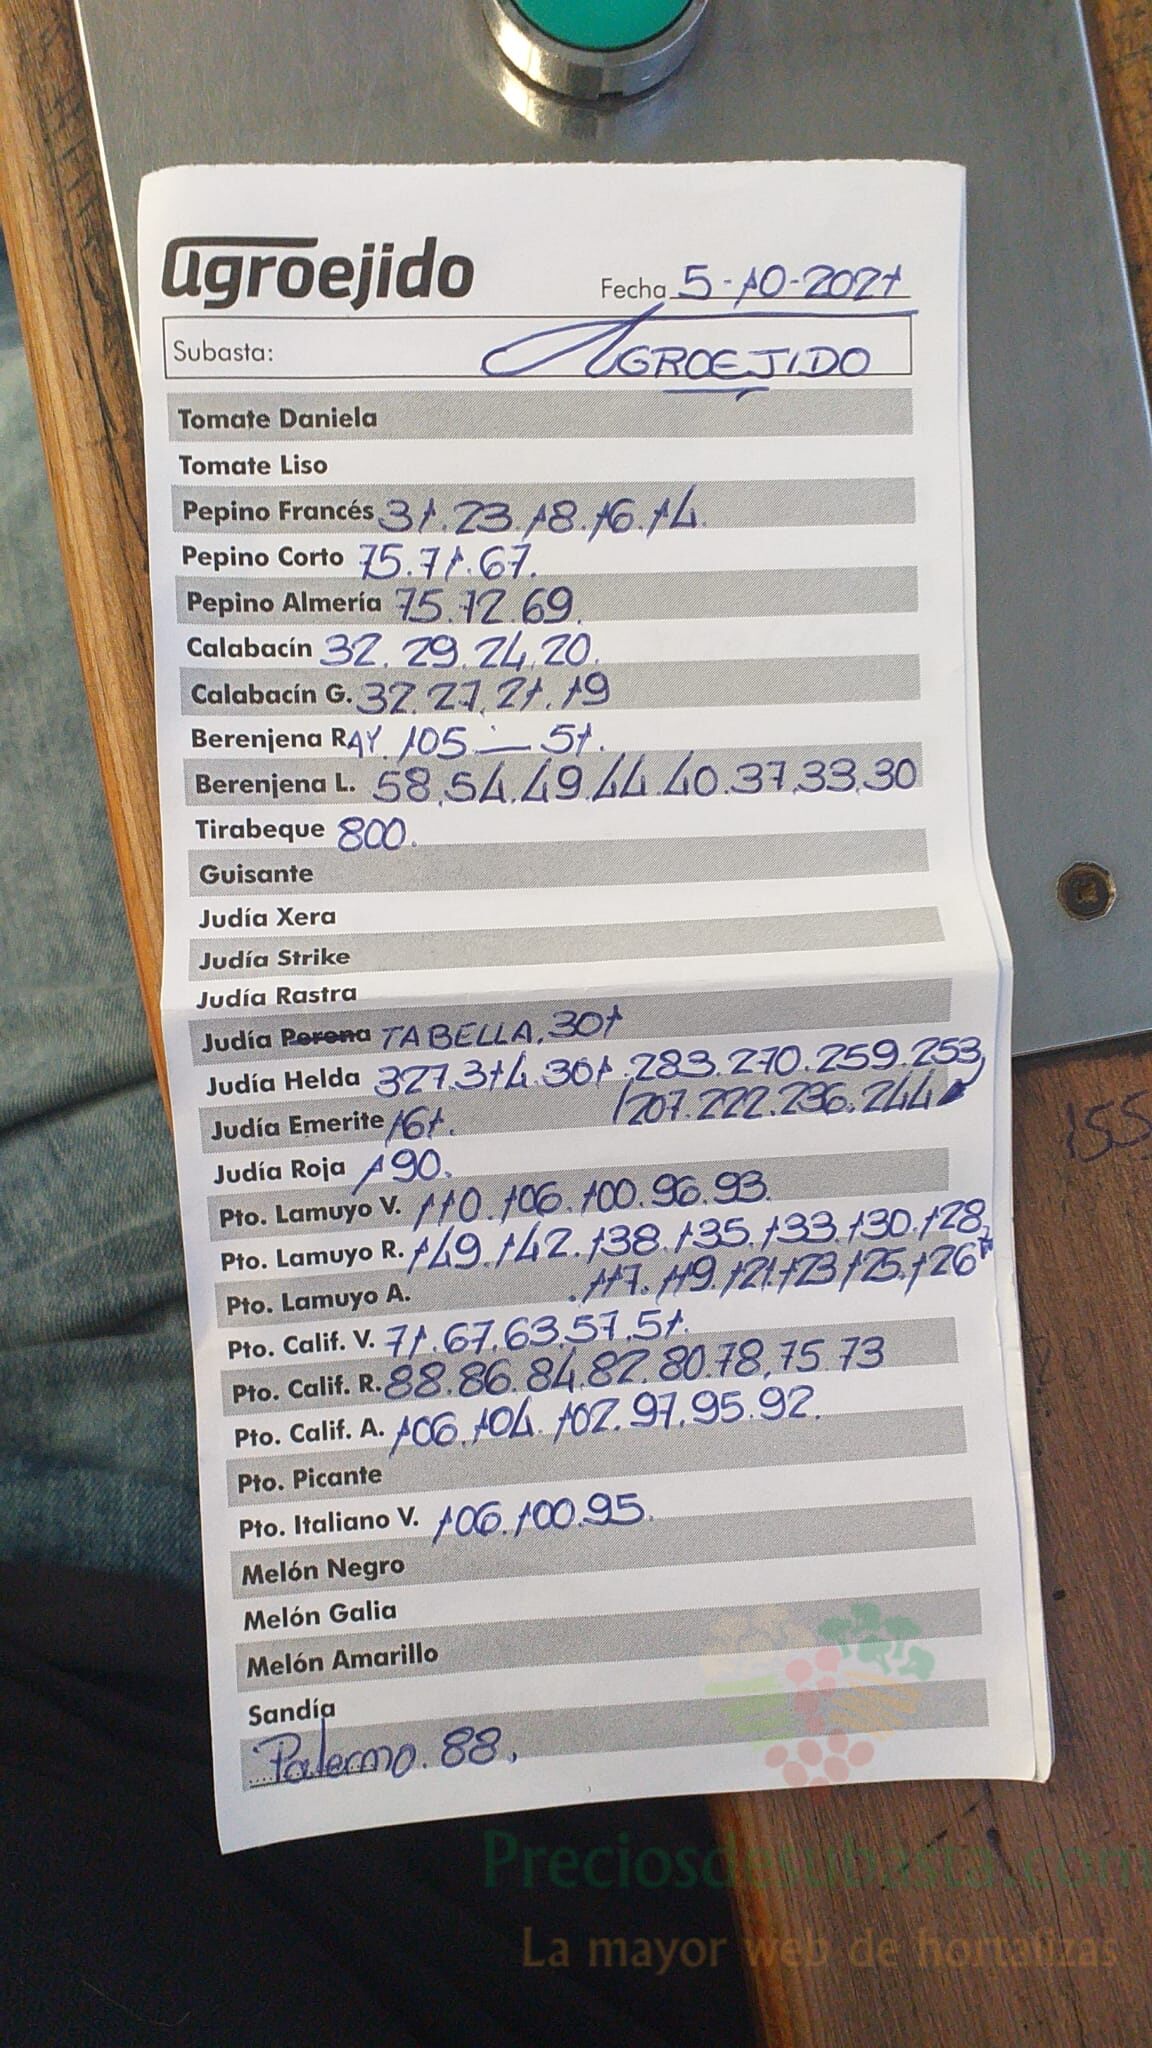 agroejido
Fecha 5-10-2021
Subasta: AGROEJIDO
Tomate Daniela
Tomate Liso
Pepino Francés 31.23.18.16.14.
Pepino Corto 75.71.67.
Pepino Almería 75.72.69.
Calabacín 32.29.24.20.
Calabacín G. 32.27.21.19
Berenjena RAY. 105 — 51.
Berenjena L. 58.54.49.44.40.37.33.30
Tirabeque 800.
Guisante
Judía Xera
Judía Strike
Judía Rastra
Judía Perona TABELLA.301
Judía Helda 327.314.301.283.270.259.253
207.222.236.244
Judía Emerite 161.
Judía Roja 190.
Pto. Lamuyo V. 110.106.100.96.93.
Pto. Lamuyo R. 149.142.138.135.133.130.128
.117.119.121.123.125.126
Pto. Lamuyo A.
Pto. Calif. V. 71.67.63.57.51.
Pto. Calif. R. 88.86.84.82.80.78.75.73
Pto. Calif. A. 106.104.102.97.95.92.
Pto. Picante
Pto. Italiano V. 106.100.95.
Melón Negro
Melón Galia
Melón Amarillo
Sandía
Palermo.88.
155
Preciosdesubasta.com
La mayor web de hortalizas